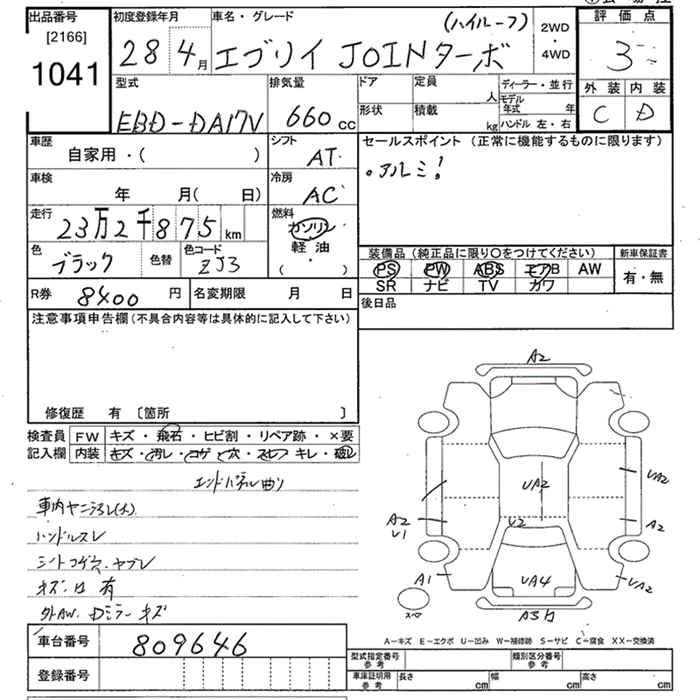 出品番号 初度登録年月 車名・グレード (ハイルーフ) 2WD 評価点
[2166] 1041 28年4月 エブリイ JOINターボ ・ 4WD 3
型式 排気量 ドア 定員 人 ディーラー・並行 外装 内装
EBD-DA17V 660cc 形状 積載 kg モデル年式 年 C D
ハンドル 左・右
車歴 自家用・( ) シフト AT セールスポイント (正常に機能するものに限ります)
車検 年 月( 日) 冷房 AC ・アルミ!
走行 23万2千875km 燃料 ガソリン
軽油
・
( )
色 ブラック 色替 色コード ZJ3
装備品 (純正品に限り〇をつけてください) 新車保証書
PS PW ABS エアB AW 有・無
SR ナビ TV カワ
R券 8400円 名変期限 月 日 後日品
注意事項申告欄 (不具合内容等は具体的に記入して下さい)
修復歴 有 〔箇所 〕
検査員 FW キズ・飛石・ヒビ割・リペア跡・×要
記入欄 内装 キズ・汚レ・コゲ・穴・スレ・キレ・破レ
エンドパネル曲リ
車内ヤニ汚レ(大)
ハンドルスレ
シートコゲ穴・ヤブレ
キズ・凹 有
外AW、Dミラーキズ
A2
UA2
UA2
A2
U1
U2
A2
A1
UA4
UA2
A3
A-キズ E-エクボ U-凹み W-補修跡 S-サビ C-腐食 XX-交換済
車台番号 809646
登録番号
型式指定番号 参考 類別区分番号 参考
車庫証明用 参考 長さ cm 幅 cm 高さ cm